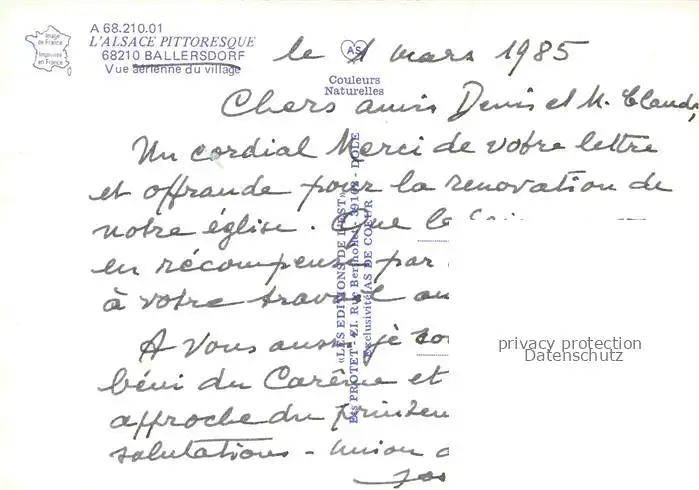 A 68.210.01
L'ALSACE PITTORESQUE
68210 BALLERSDORF
Vue aérienne du village
Image de France
Imprimée en France
AS
Couleurs
Naturelles
le 1 mars 1985
Chers amis Denis et M. Claude,
Un cordial Merci de votre lettre
et offrande pour la renovation de
notre église. Que le
en récompense par
à votre travail au
A Vous aussi je
béni du Carême et
approche du printem
salutations - union
«LES EDITIONS DE L'EST»
Ets PROTET - ZI. Rue Berthollet - 39100 - DOLE
Exclusivité AS DE COEUR
privacy protection
Datenschutz